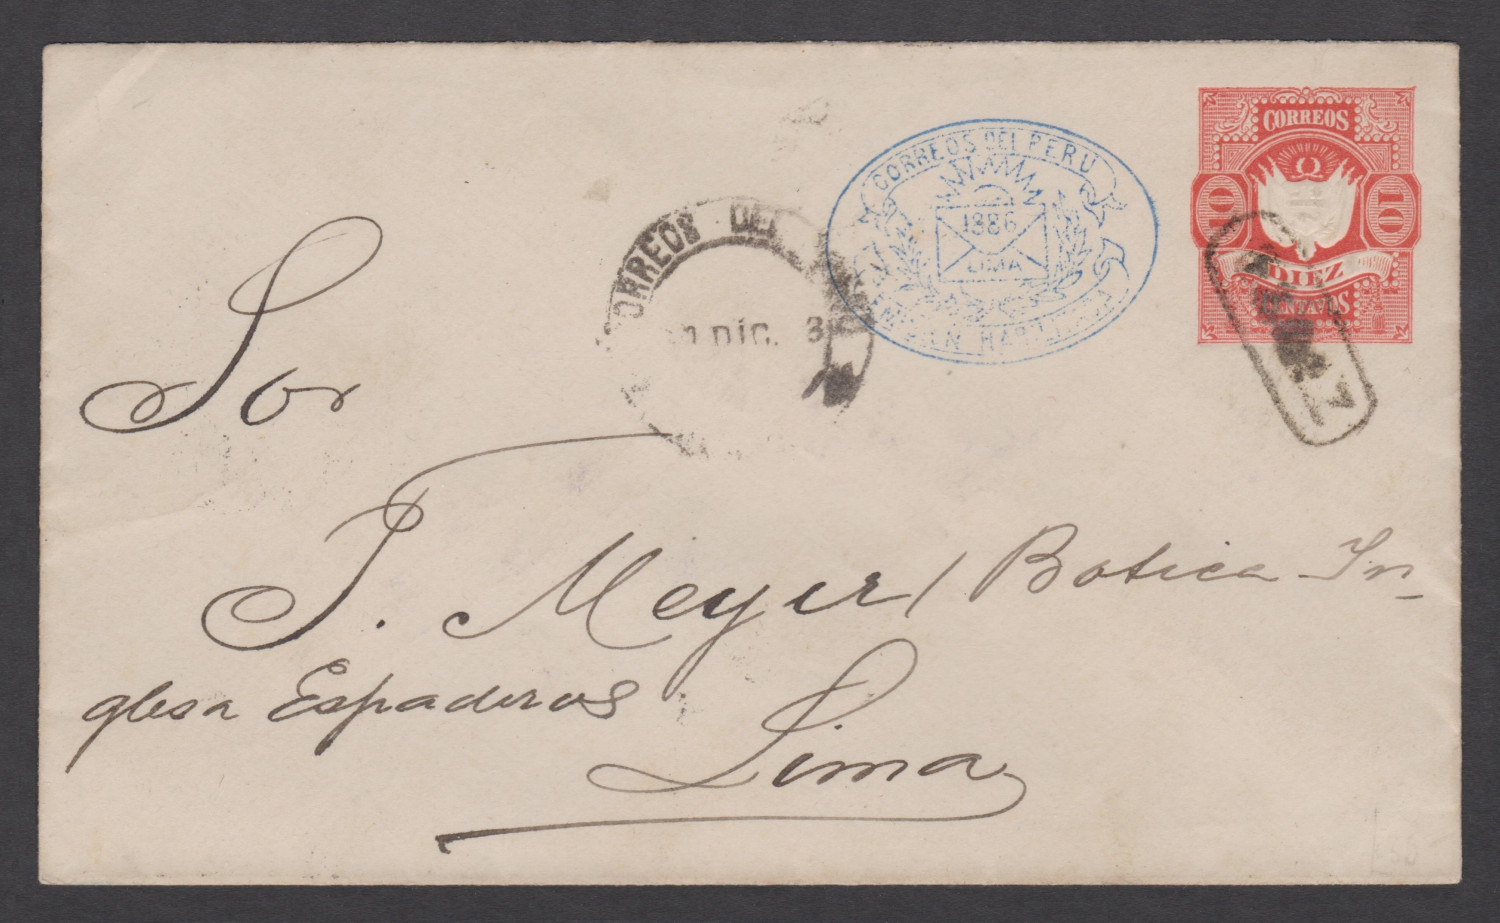 CORREOS
10 10
DIEZ
CENTAVOS
CORREOS DEL PERU
1886
LIMA
CORREOS DEL
DIC.
Sor
J. Meyer / Botica In-
glesa Espaderos
Lima